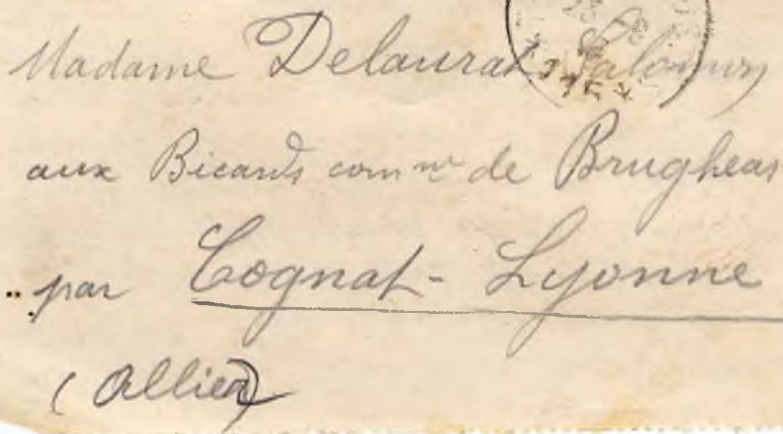 Madame Delaurat Salomon
aux Bicards comne de Brugheas
par Cognat-Lyonne
(Allier)